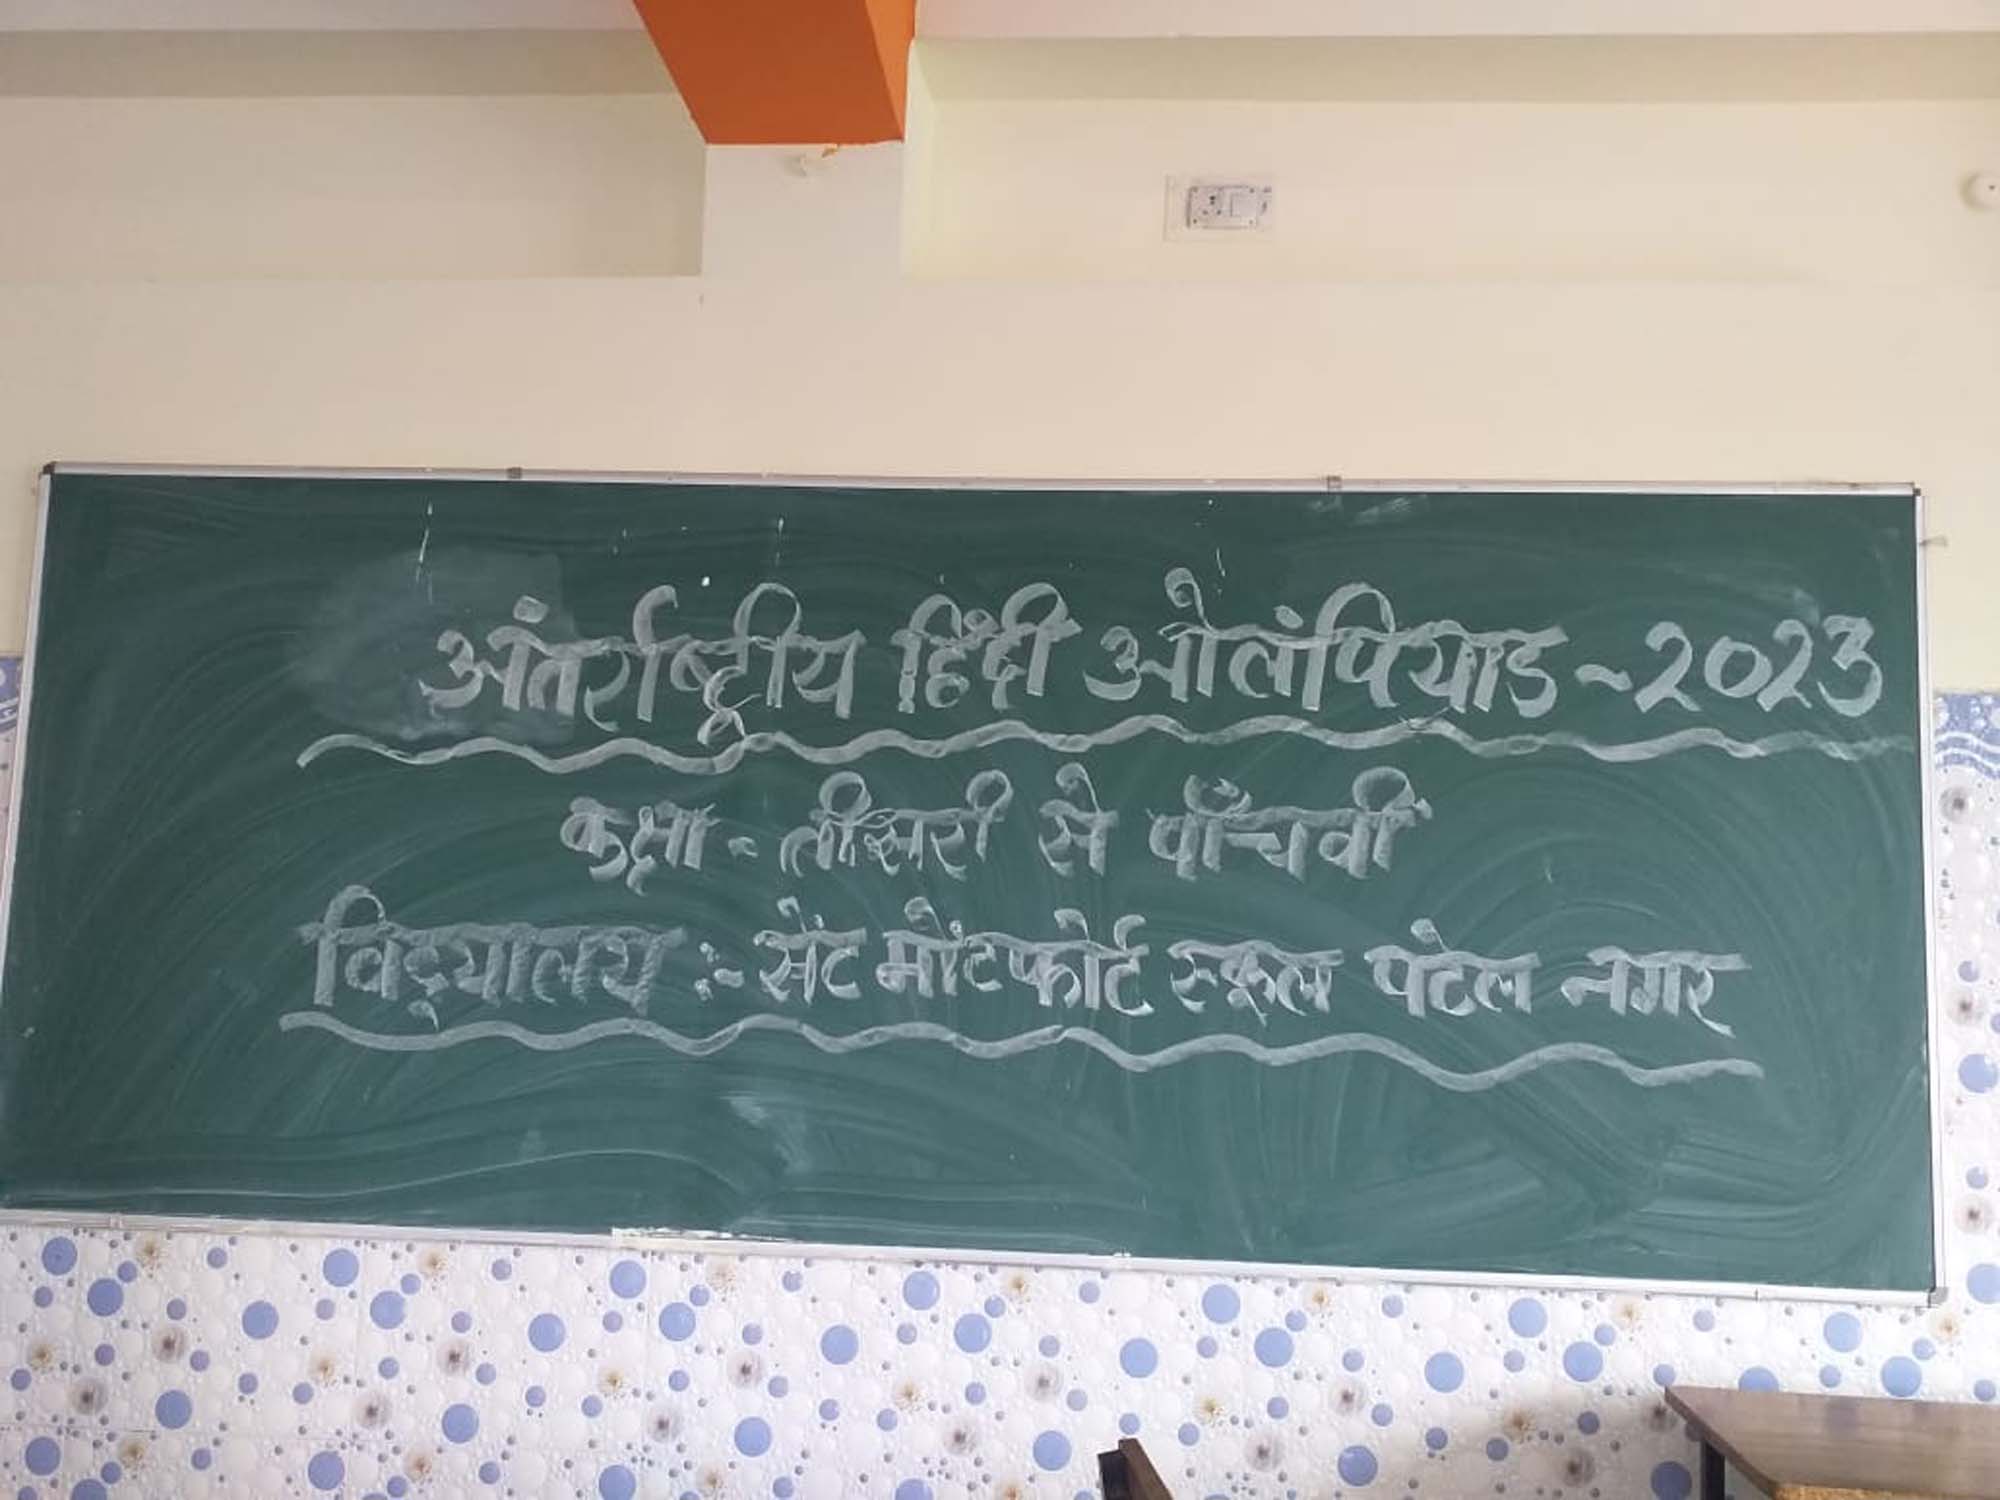 अंतर्राष्ट्रीय हिंदी ओलंपियाड ~ 2023
कक्षा - तीसरी से पाँचवी
विद्यालय :- सेंट मोंटफोर्ट स्कूल पटेल नगर